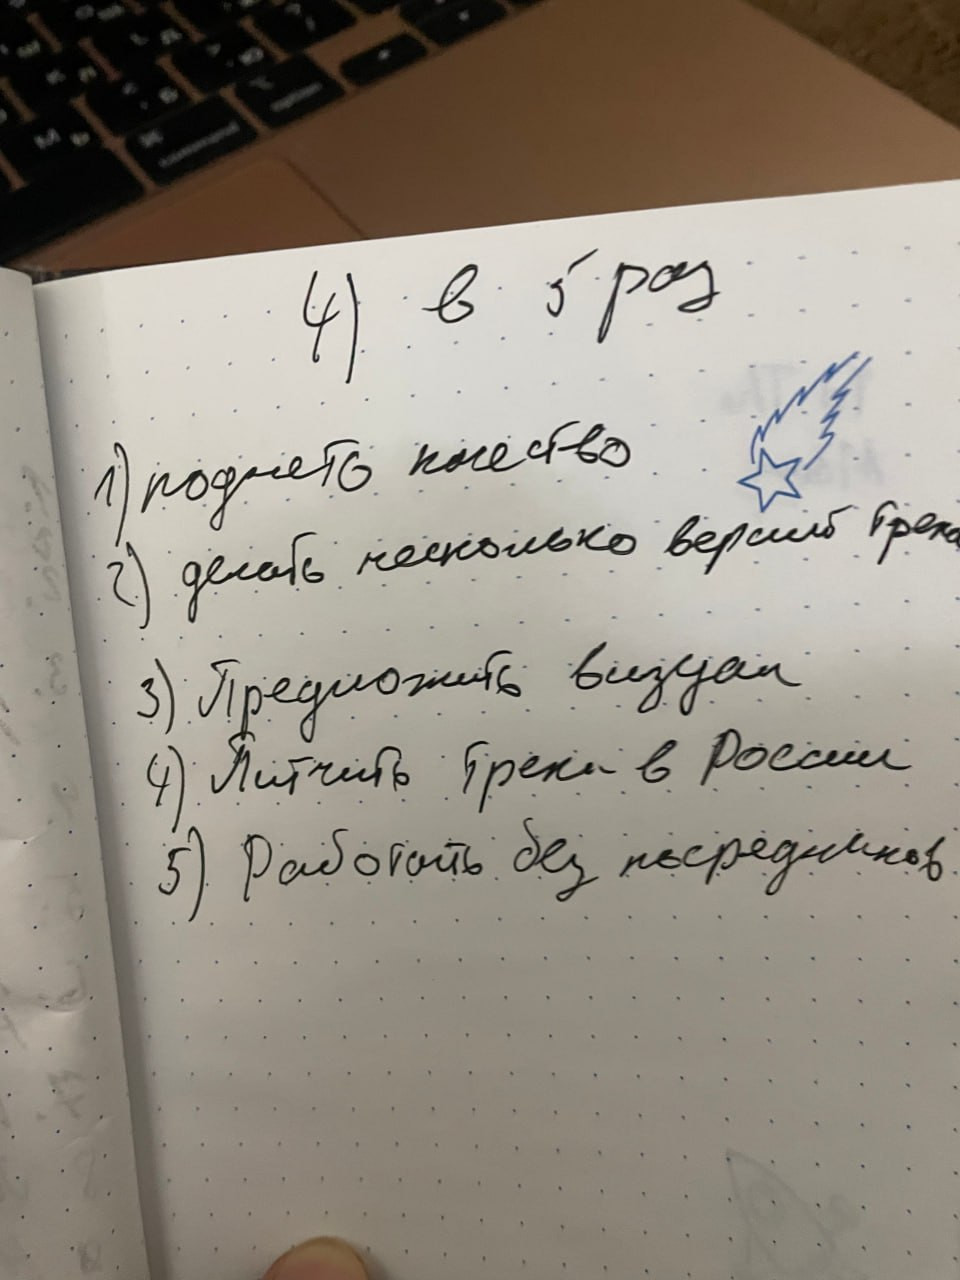 command
option
4) в 5 раз
1) поднять качество
2) делать несколько версий трека
3) Предложить визуал
4) Питчить треки в России
5) Работать без посредников